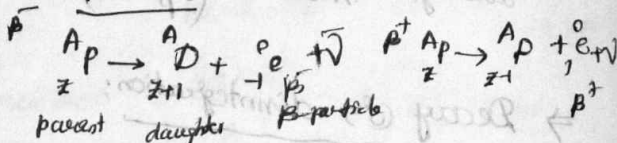 β⁻ ᴬ_Z P → ᴬ_{Z+1} D + ⁰_{-1} e + ν̄ β⁺ ᴬ_Z P → ᴬ_{Z-1} D + ⁰_1 e + ν
parent daughter β-particle β⁺